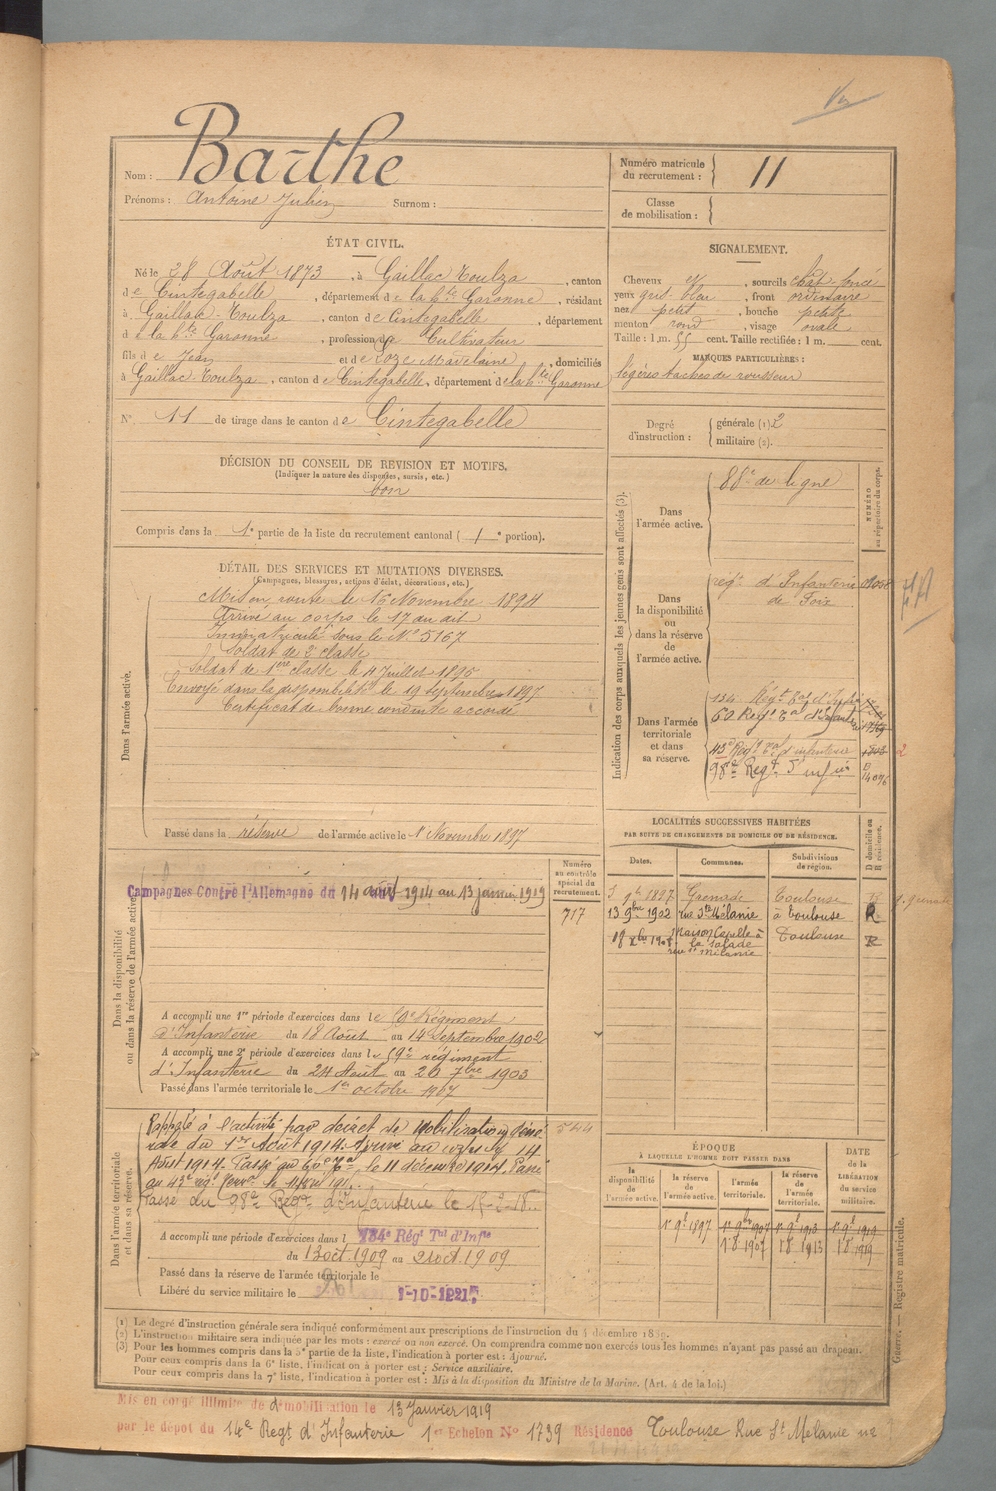 Nom : Barthe
Prénoms : Antoine Julien Surnom :
Numéro matricule
du recrutement : 11
Classe
de mobilisation :
ÉTAT CIVIL.
Né le 28 Août 1873, à Gaillac-Toulza, canton
de Cintegabelle, département de la hte Garonne, résidant
à Gaillac-Toulza, canton de Cintegabelle, département
de la hte Garonne, profession de Cultivateur
fils de Jean et de Loze Madelaine, domiciliés
à Gaillac-Toulza, canton de Cintegabelle, département de la hte Garonne
N° 11 de tirage dans le canton de Cintegabelle
SIGNALEMENT.
Cheveux , sourcils chat. foncé
yeux gris bleu, front ordinaire
nez petit, bouche petite
menton rond, visage ovale
Taille : 1 m. 55 cent. Taille rectifiée : 1 m. cent.
MARQUES PARTICULIÈRES :
légères taches de rousseur
Degré
d'instruction :
générale (1) 2
militaire (2).
DÉCISION DU CONSEIL DE REVISION ET MOTIFS.
(Indiquer la nature des dispenses, sursis, etc.)
bon
Compris dans la 1e partie de la liste du recrutement cantonal (1e portion).
DÉTAIL DES SERVICES ET MUTATIONS DIVERSES.
(Campagnes, blessures, actions d'éclat, décorations, etc.)
Dans l'armée active.
Mis en route le 16 Novembre 1894
Arrivé au corps le 17 du dit
Immatriculé sous le N° 5167
Soldat de 2e classe
Soldat de 1ère classe le 4 Juillet 1895
Envoyé dans la disponibilité le 19 septembre 1897
Certificat de bonne conduite accordé
Passé dans la réserve de l'armée active le 1 Novembre 1897
Indication des corps auxquels les jeunes gens sont affectés (3).
NUMÉRO
au répertoire du corps.
Dans
l'armée active.
88e de ligne
Dans
la disponibilité
ou
dans la réserve
de
l'armée active.
régt d'Infanterie
de Foix
Dans l'armée
territoriale
et dans
sa réserve.
134 Régt Tal d'Infie
60 Regt Tal d'Infanterie
43e Regt Tal d'infanterie
98e Regt d'infie
Dans la disponibilité
ou dans la réserve de l'armée active.
Numéro
au contrôle
spécial du
recrutement.
717
Campagnes Contre l'Allemagne du 14 août 1914 au 13 janvier 1919
A accompli une 1re période d'exercices dans le 59e Régiment
d'Infanterie du 18 Août au 14 Septembre 1902
A accompli une 2e période d'exercices dans le 59e régiment
d'Infanterie du 24 Août au 20 7bre 1903
Passé dans l'armée territoriale le 1er octobre 1907
LOCALITÉS SUCCESSIVES HABITÉES
PAR SUITE DE CHANGEMENTS DE DOMICILE OU DE RÉSIDENCE.
D domicile ou
R résidence.
Dates. Communes. Subdivisions
de région.
5 9b 1897 Grenade Toulouse
13 9bre 1902 rue Ste Mélanie à Toulouse R
18 Xbre 190 Maison Capelle à
la Salade
rue Ste Mélanie Toulouse R
Dans l'armée territoriale
et dans sa réserve.
Rappelé à l'activité par décret de Mobilisation géné
rale du 1er Août 1914. Arrivé au corps le 14
Août 1914. Passé au 60e Tal le 11 décembre 1914. Passé
au 43e régt Terral le
Passé au 98e Regt d'Infanterie le 15-3-18.
544
A accompli une période d'exercices dans l 134e Rég Tal d'Infie
du 13 oct. 1909 au 21 oct. 1909
Passé dans la réserve de l'armée territoriale le
Libéré du service militaire le 1-10-1921
ÉPOQUE
A LAQUELLE L'HOMME DOIT PASSER DANS
DATE
de la
LIBÉRATION
du service
militaire.
la
disponibilité
de
l'armée active.
la réserve
de
l'armée active.
l'armée
territoriale.
la réserve
de
l'armée
territoriale.
1er 9b 1897 1er 9bre 1907 1er 9b 1913 1er 9b 1919
1 8 1907 1 8 1913 1 8 1919
Guerre. — Registre matricule.
(1) Le degré d'instruction générale sera indiqué conformément aux prescriptions de l'instruction du 4 décembre 1889.
(2) L'instruction militaire sera indiquée par les mots : exercé ou non exercé. On comprendra comme non exercés tous les hommes n'ayant pas passé au drapeau.
(3) Pour les hommes compris dans la 5e partie de la liste, l'indication à porter est : Ajourné.
Pour ceux compris dans la 6e liste, l'indication à porter est : Service auxiliaire.
Pour ceux compris dans la 7e liste, l'indication à porter est : Mis à la disposition du Ministre de la Marine. (Art. 4 de la loi.)
Mis en congé illimité de démobilisation le 13 Janvier 1919
par le dépôt du 14e Regt d'Infanterie 1er Echelon N° 1739 Résidence Toulouse Rue Ste Mélanie n2